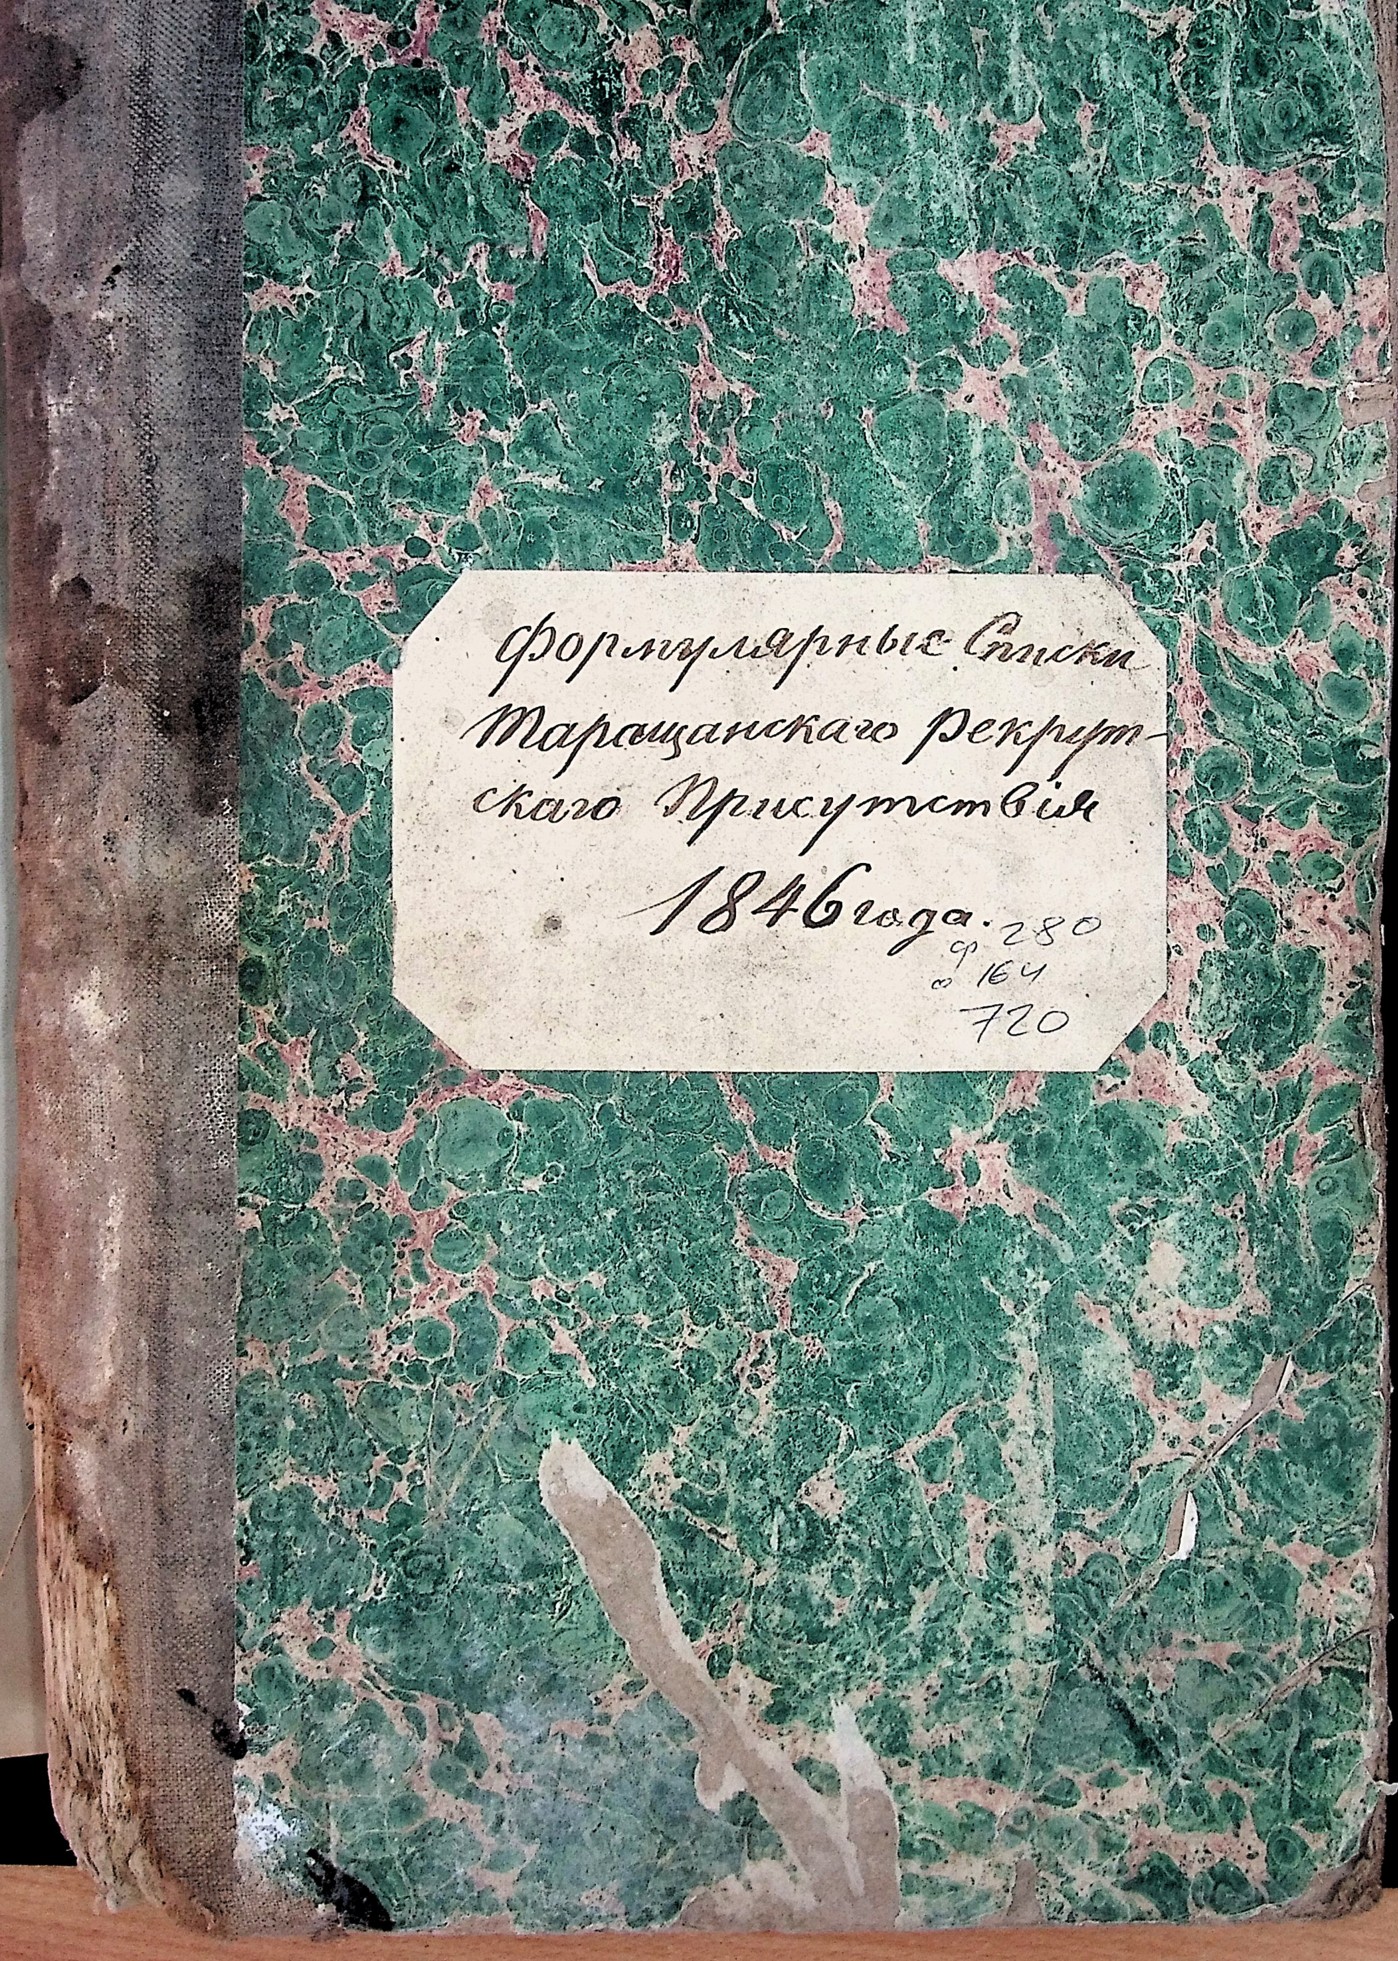 Формулярные Списки
Таращанскаго Рекрут-
скаго Присутствія
1846 года.
ф 280
о 164
720